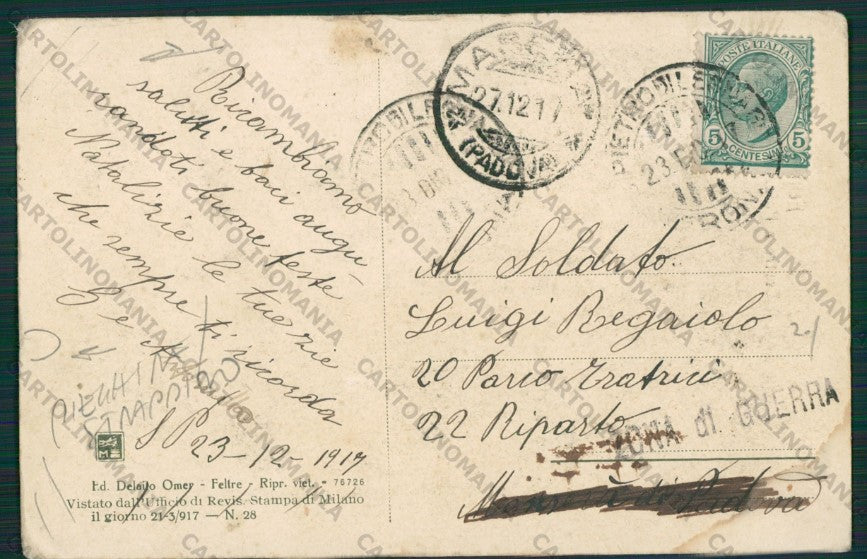 Ricambiamo
saluti e baci augu-
randoti buone feste
Natalizie le tue zie
che sempre ti ricorda
S P 23-12-1917
Ed. Delaito Omer - Feltre - Ripr. viet. - 76726
Vistato dall'Ufficio di Revis. Stampa di Milano
il giorno 21-3/917 — N. 28
MASERA
27.12.17
(PADOVA)
23 DIC
POSTE ITALIANE
5 5
CENTESIMI
Al Soldato
Luigi Regaiolo
20 Parco Tratrici
22 Riparto
ZONA di GUERRA
di Padova
CARTOLINOMANIA